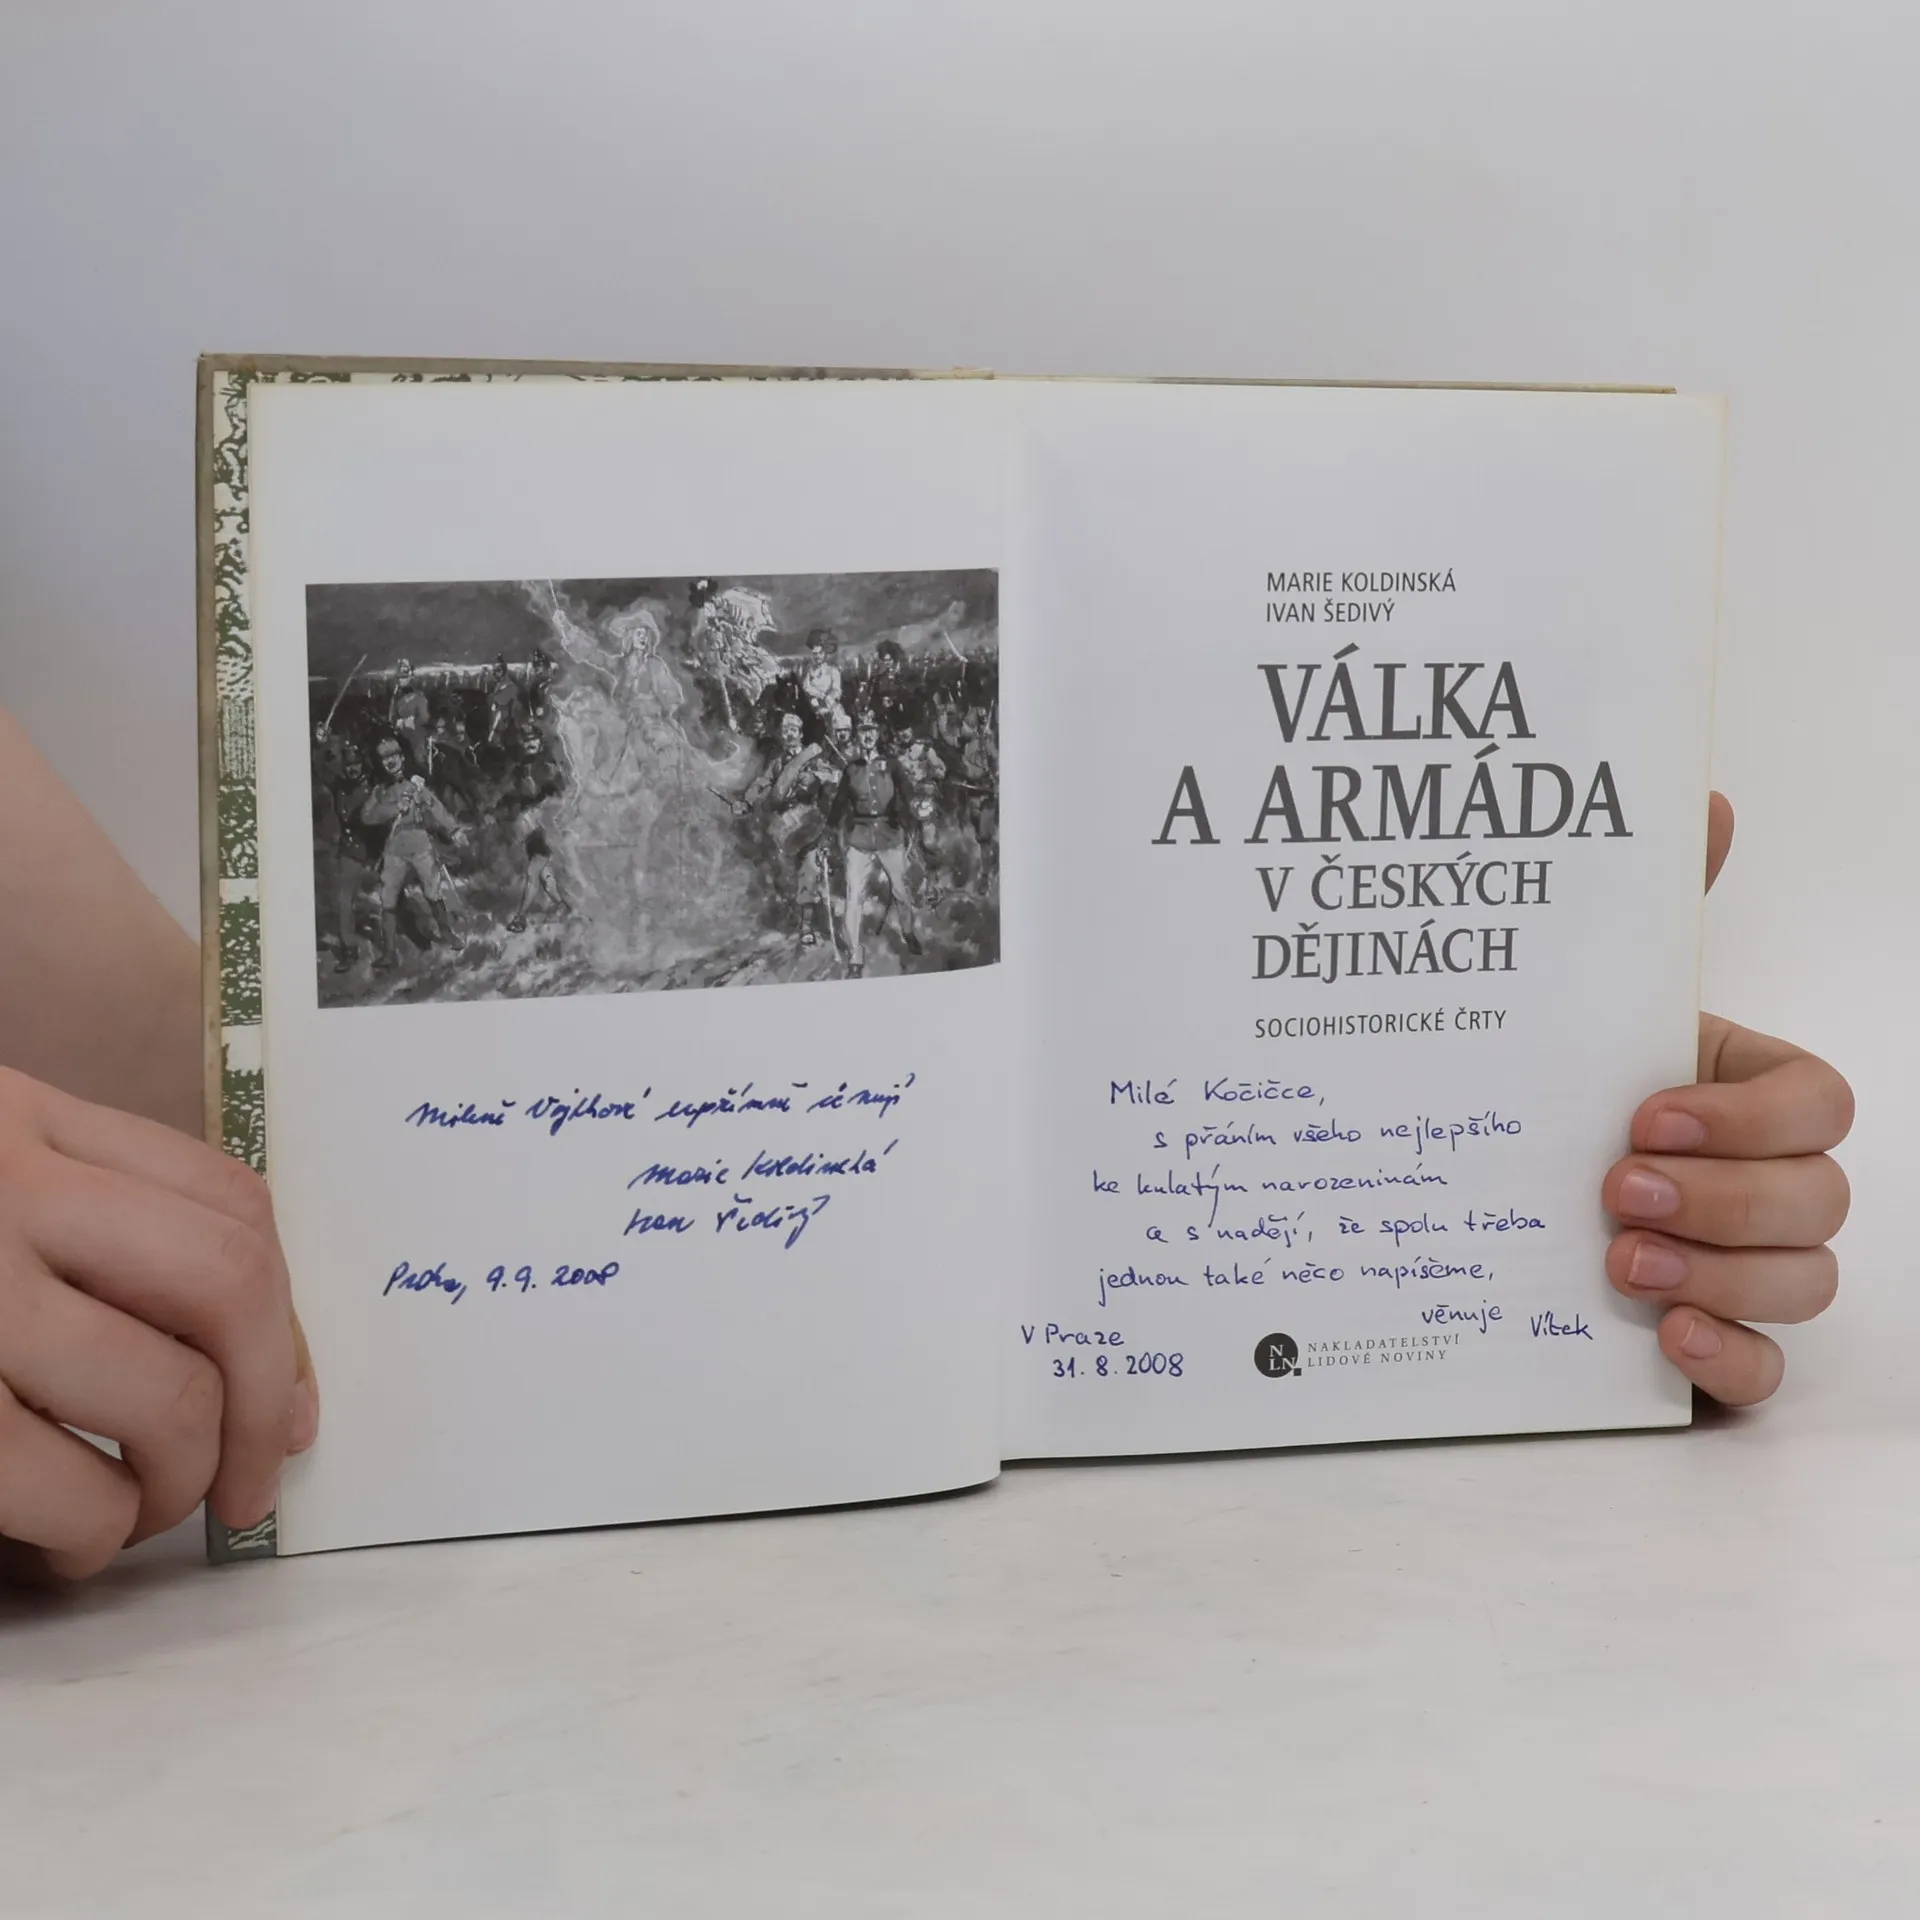 Mileně Vojtkové upřímně věnují
Marie Koldinská
Ivan Šedivý
Praha, 9.9.2008
MARIE KOLDINSKÁ
IVAN ŠEDIVÝ
VÁLKA
A ARMÁDA
V ČESKÝCH
DĚJINÁCH
SOCIOHISTORICKÉ ČRTY
Milé Kočičce,
s přáním všeho nejlepšího
ke kulatým narozeninám
a s nadějí, že spolu třeba
jednou také něco napíšeme,
věnuje Vítek
V Praze
31.8.2008
NLN
NAKLADATELSTVÍ
LIDOVÉ NOVINY